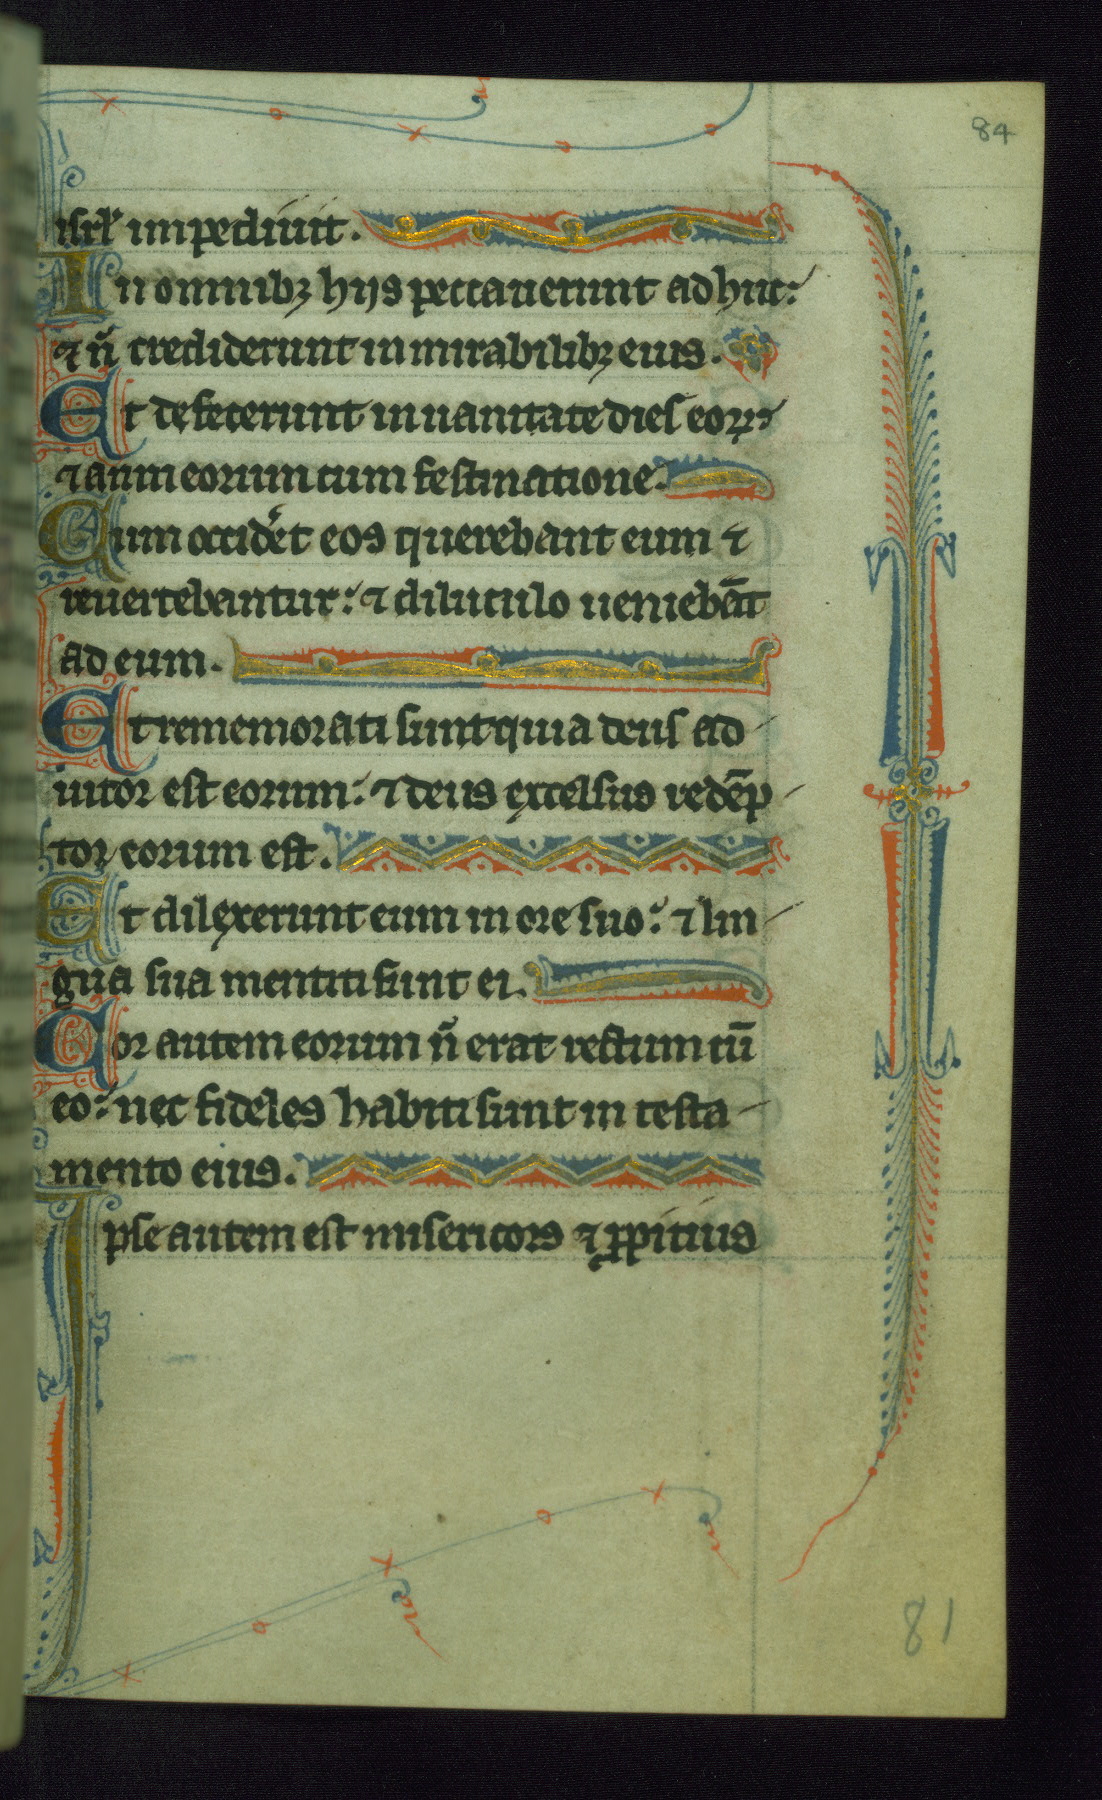 84
isrl' impediuit.
In omnibꝫ hijs peccauerunt adhuc:
⁊ ñ crediderunt in mirabilibꝫ eius.
Et defecerunt in uanitate dies eoꝝ:
⁊ anni eorum cum festinatione.
Cum occid'et eos querebant eum ⁊
reuertebantur: ⁊ diluculo ueniebāt
ad eum.
Et rememorati sunt quia deus ad
iutor est eorum: ⁊ deus excelsus redēp
tor eorum est.
Et dilexerunt eum in ore suo: ⁊ lin
gua sua mentiti sunt ei.
Cor autem eorum ñ erat rectum cū
eo: nec fideles habiti sunt in testa
mento eius.
Ipse autem est misericors ⁊ ꝓpitius
81